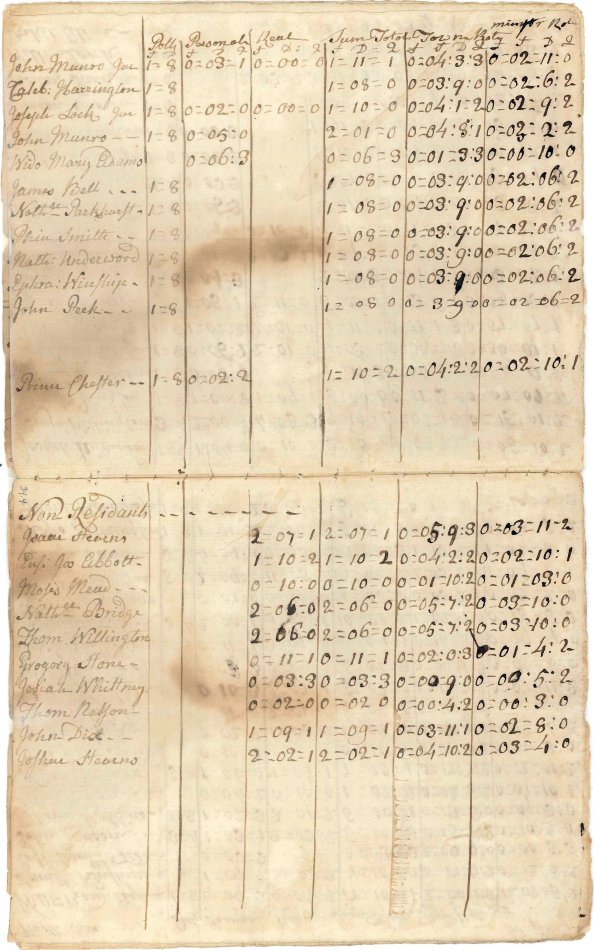 Polls Personal Real Sum Total Town Rate minstr Rate
£ D : Q £ D : Q £ D Q £ £ D Q £ D Q
John Munro Jur 1=8 0=03=1 0=00=0 1=11=1 0=04:3:3 0=02=11:0
Caleb: Harrington 1=8 1=08=0 0=03:9:0 0=02:6:2
Joseph Lock Jur 1=8 0=02=0 0=00=0 1=10=0 0=04:1=2 0=02=9:2
John Munro 1=8 0=05:0 2=01=0 0=04:8:1 0=03=2:2
Wido Mary Adams 0=06:3 0=06=3 0=01=3:3 0=00=10:0
James Bell 1=8 1=08=0 0=03=9:0 0=02:06:2
Nathll Parkhurst 1=8 1=08=0 0=03:9:0 0=02:06:2
Phin Smith 1=8 1=08=0 0=03:9:0 0=02:06:2
Nath: Underwood 1=8 1=08=0 0=03:9:0 0=02:06:2
Ephra: Winship 1=8 1=08=0 0=03:9:0 0=02:06:2
John Peck 1=8 1=08 0 0=3=9=0 0=02=06=2
Prince Chester 1=8 0=02:2 1=10=2 0=04:2:2 0=02=10:1
344
Non Residants
Isaac Stearns 2=07=1 2=07=1 0=05:9:3 0=03=11=2
Ensi: Jos Abbott 1=10=2 1=10=2 0=04:2:2 0=02=10:1
Moses Mead 0=10:0 0=10=0 0=01=10:2 0=01=03:0
Nathll Bridge 2=06=0 2=06=0 0=05=7:2 0=03=10:0
Thom Wellington 2=06:0 2=06=0 0=05=7:2 0=03=10:0
Gregory Stone 0=11=1 0=11=1 0=02:0:3 0=01=4:2
Josiah Whittney 0=03:3 0=03=3 0=00=9:0 0=00=5:2
Thom Nelson 0=02=0 0=02:0 0=00:4:2 0=00=3:0
John Dix 1=09=1 1=09=1 0=03=11:1 0=02=8:0
Joshua Stearns 2=02=1 2=02=1 0=04=10:2 0=03=4:0